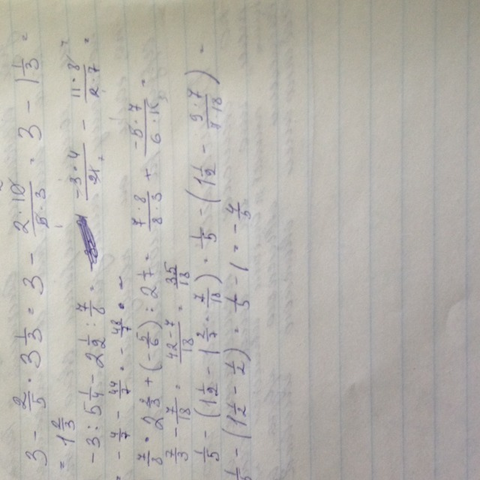 3 - 2/5 · 3 1/3 = 3 - (2·10)/(5·3) = 3 - 1 1/3 =
= 1 2/3
-3 : 5 1/4 - 2 1/2 : 7/8 = (-3·4)/21 - (11·8)/(2·7) =
= - 4/7 - 44/7 = - 48/7 =
7/8 · 2 2/3 + (- 5/6) : 2 1/7 = (7·8)/(8·3) + (-5·7)/(6·15) =
7/3 - 7/18 = (42-7)/18 = 35/18
1/5 - (1 1/2 - 1 2/7 · 7/18) = 1/5 - (1 1/2 - (9·7)/(7·18)) =
1/5 - (1 1/2 - 1/2) = 1/5 - 1 = - 4/5